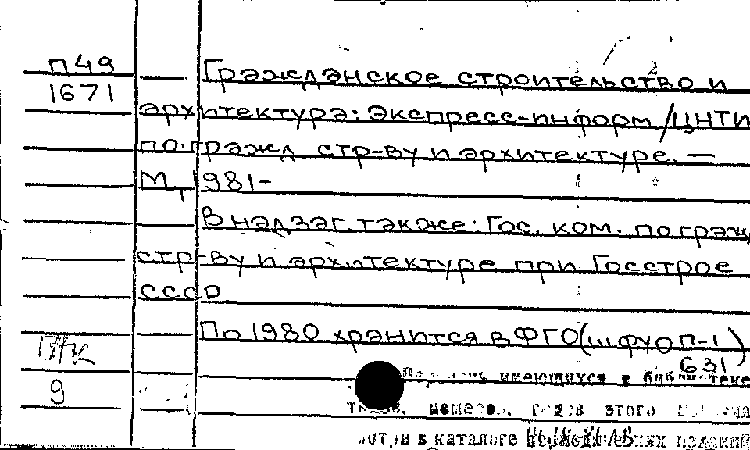 П49 Гражданское строительство и
1671 архитектура: Экспресс-информ/ЦНТИ
по гражд. стр-ву и архитектуре. —
М., 1981-
В надзаг. также: Гос. ком. по граж
стр-ву и архитектуре при Госстрое
СССР
По 1980 хранится в ФГО(шифр П-1)
631
имеющихся в библиотеке
9
номеров, этого
в каталоге